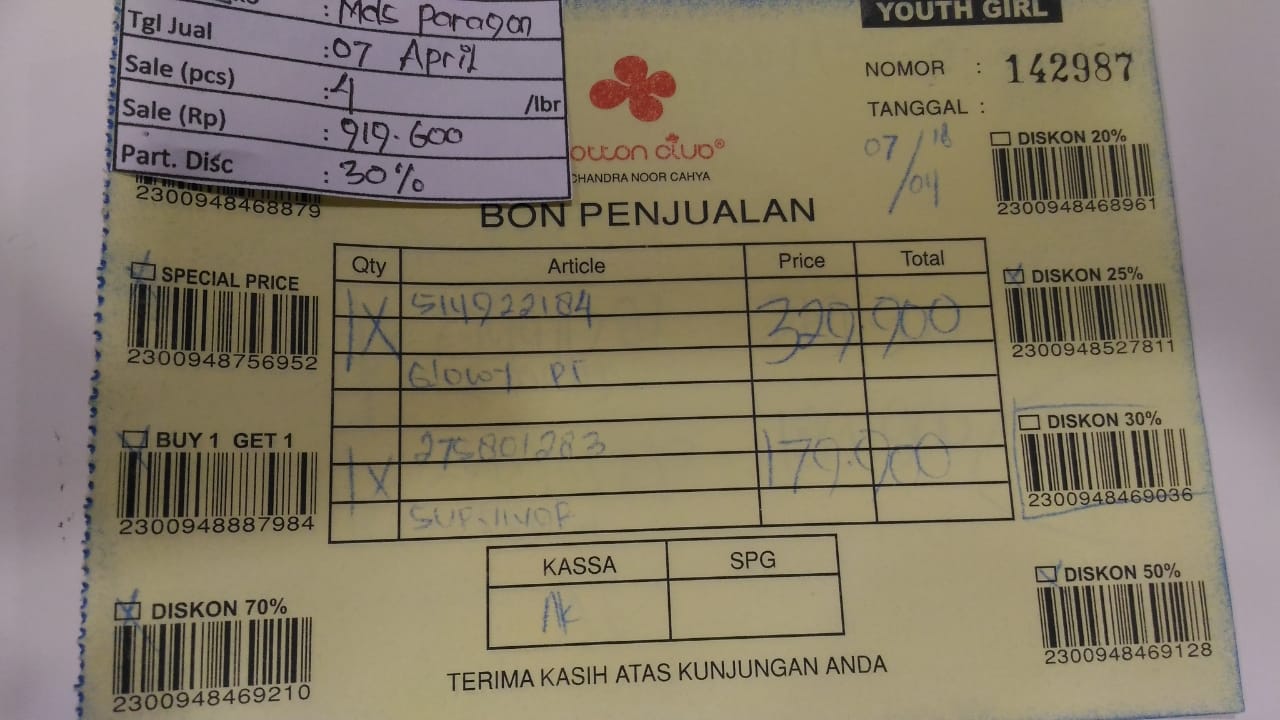 : Mds Paragon
Tgl Jual : 07 April
Sale (pcs) : 4 /lbr
Sale (Rp) : 919.600
Part. Disc : 30%
YOUTH GIRL
NOMOR : 142987
TANGGAL :
07/04 18
CHANDRA NOOR CAHYA
BON PENJUALAN
2300948468879
DISKON 20%
2300948468961
SPECIAL PRICE
2300948756952
DISKON 25%
2300948527811
BUY 1 GET 1
2300948887984
DISKON 30%
2300948469036
DISKON 70%
2300948469210
DISKON 50%
2300948469128
Qty Article Price Total
1X 514922184 329.900
Glowy PT
1X 275801283 179.900
KASSA SPG
TERIMA KASIH ATAS KUNJUNGAN ANDA